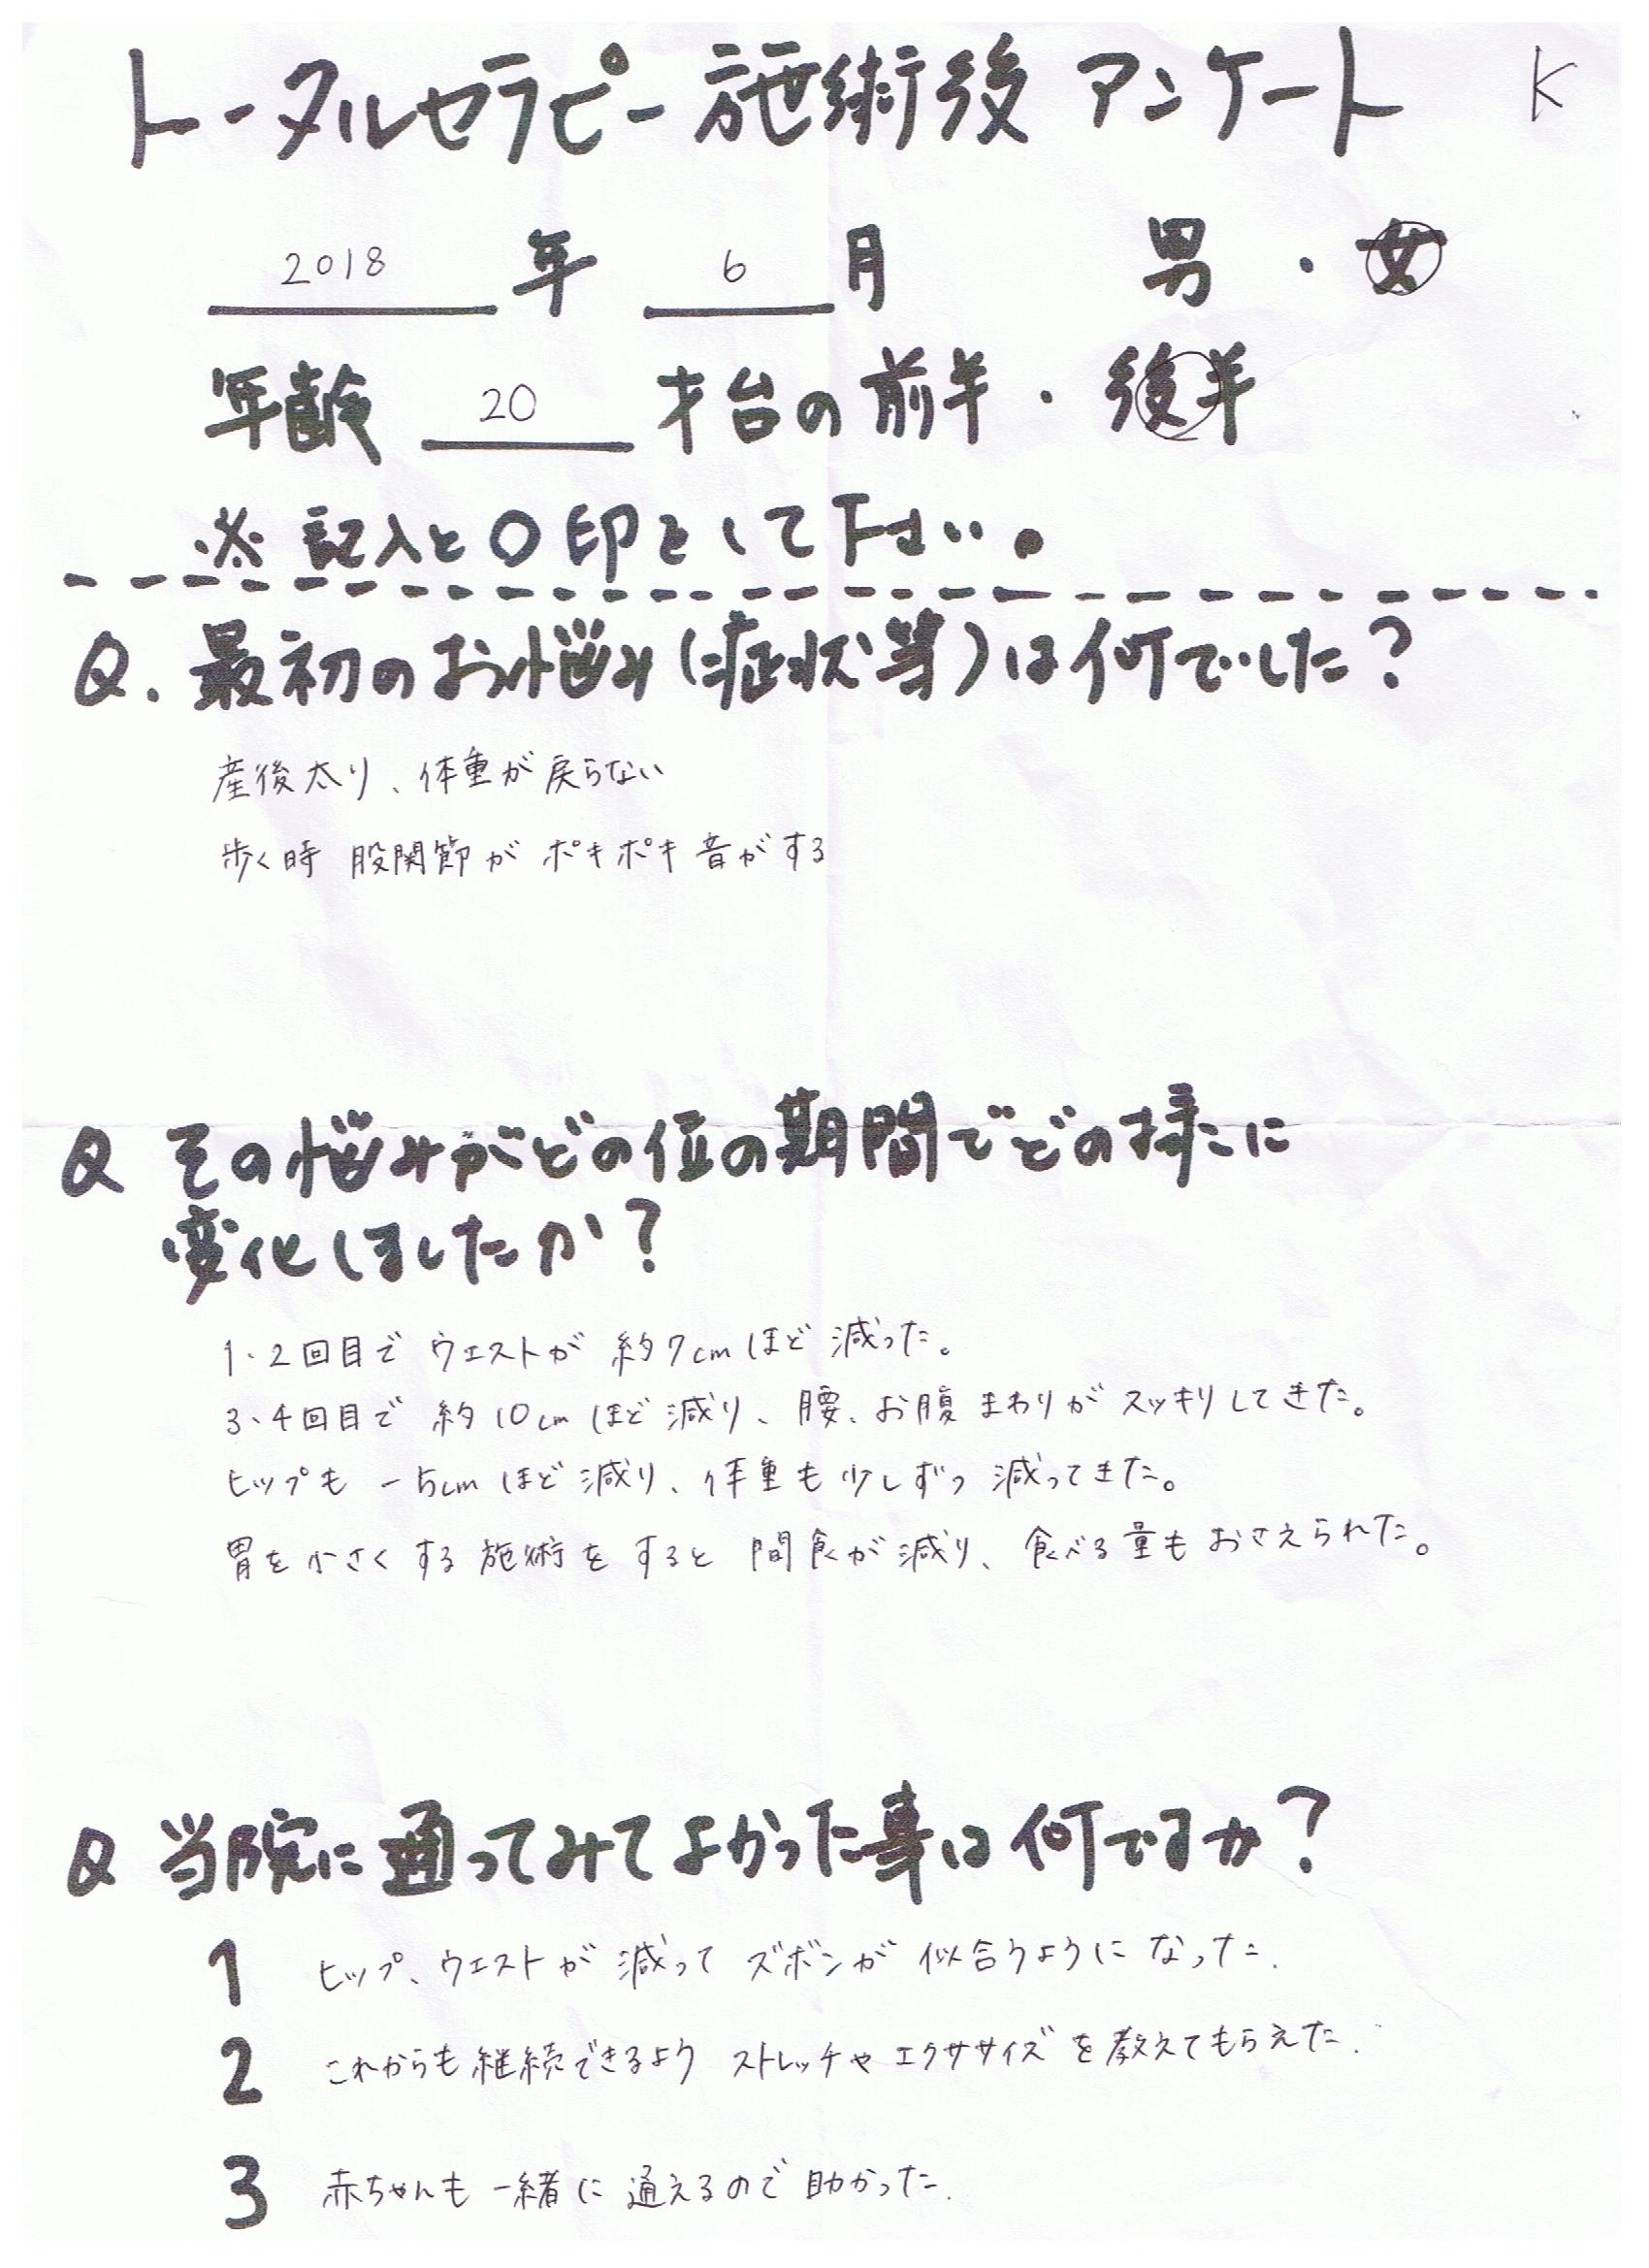 トータルセラピー施術後 アンケート K
2018 年 6 月 男 ・ 女
年齢 20 才台の前半 ・ 後半
※ 記入と〇印をして下さい。
Q. 最初のお悩み(症状等)は何でした?
産後太り、体重が戻らない
歩く時 股関節が ポキポキ 音がする
Q その悩みがどの位の期間でどの様に
変化しましたか?
1・2回目で ウエストが 約7cmほど 減った。
3・4回目で 約10cmほど減り、腰、お腹まわりがスッキリしてきた。
ヒップも -5cmほど減り、体重も少しずつ 減ってきた。
胃を小さくする 施術を すると 間食が減り、食べる量もおさえられた。
Q 当院に通ってみてよかった事は何ですか?
1 ヒップ、ウエストが 減って ズボンが 似合うように なった.
2 これからも継続できるよう ストレッチや エクササイズを教えてもらえた.
3 赤ちゃんも 一緒に 通えるので助かった.